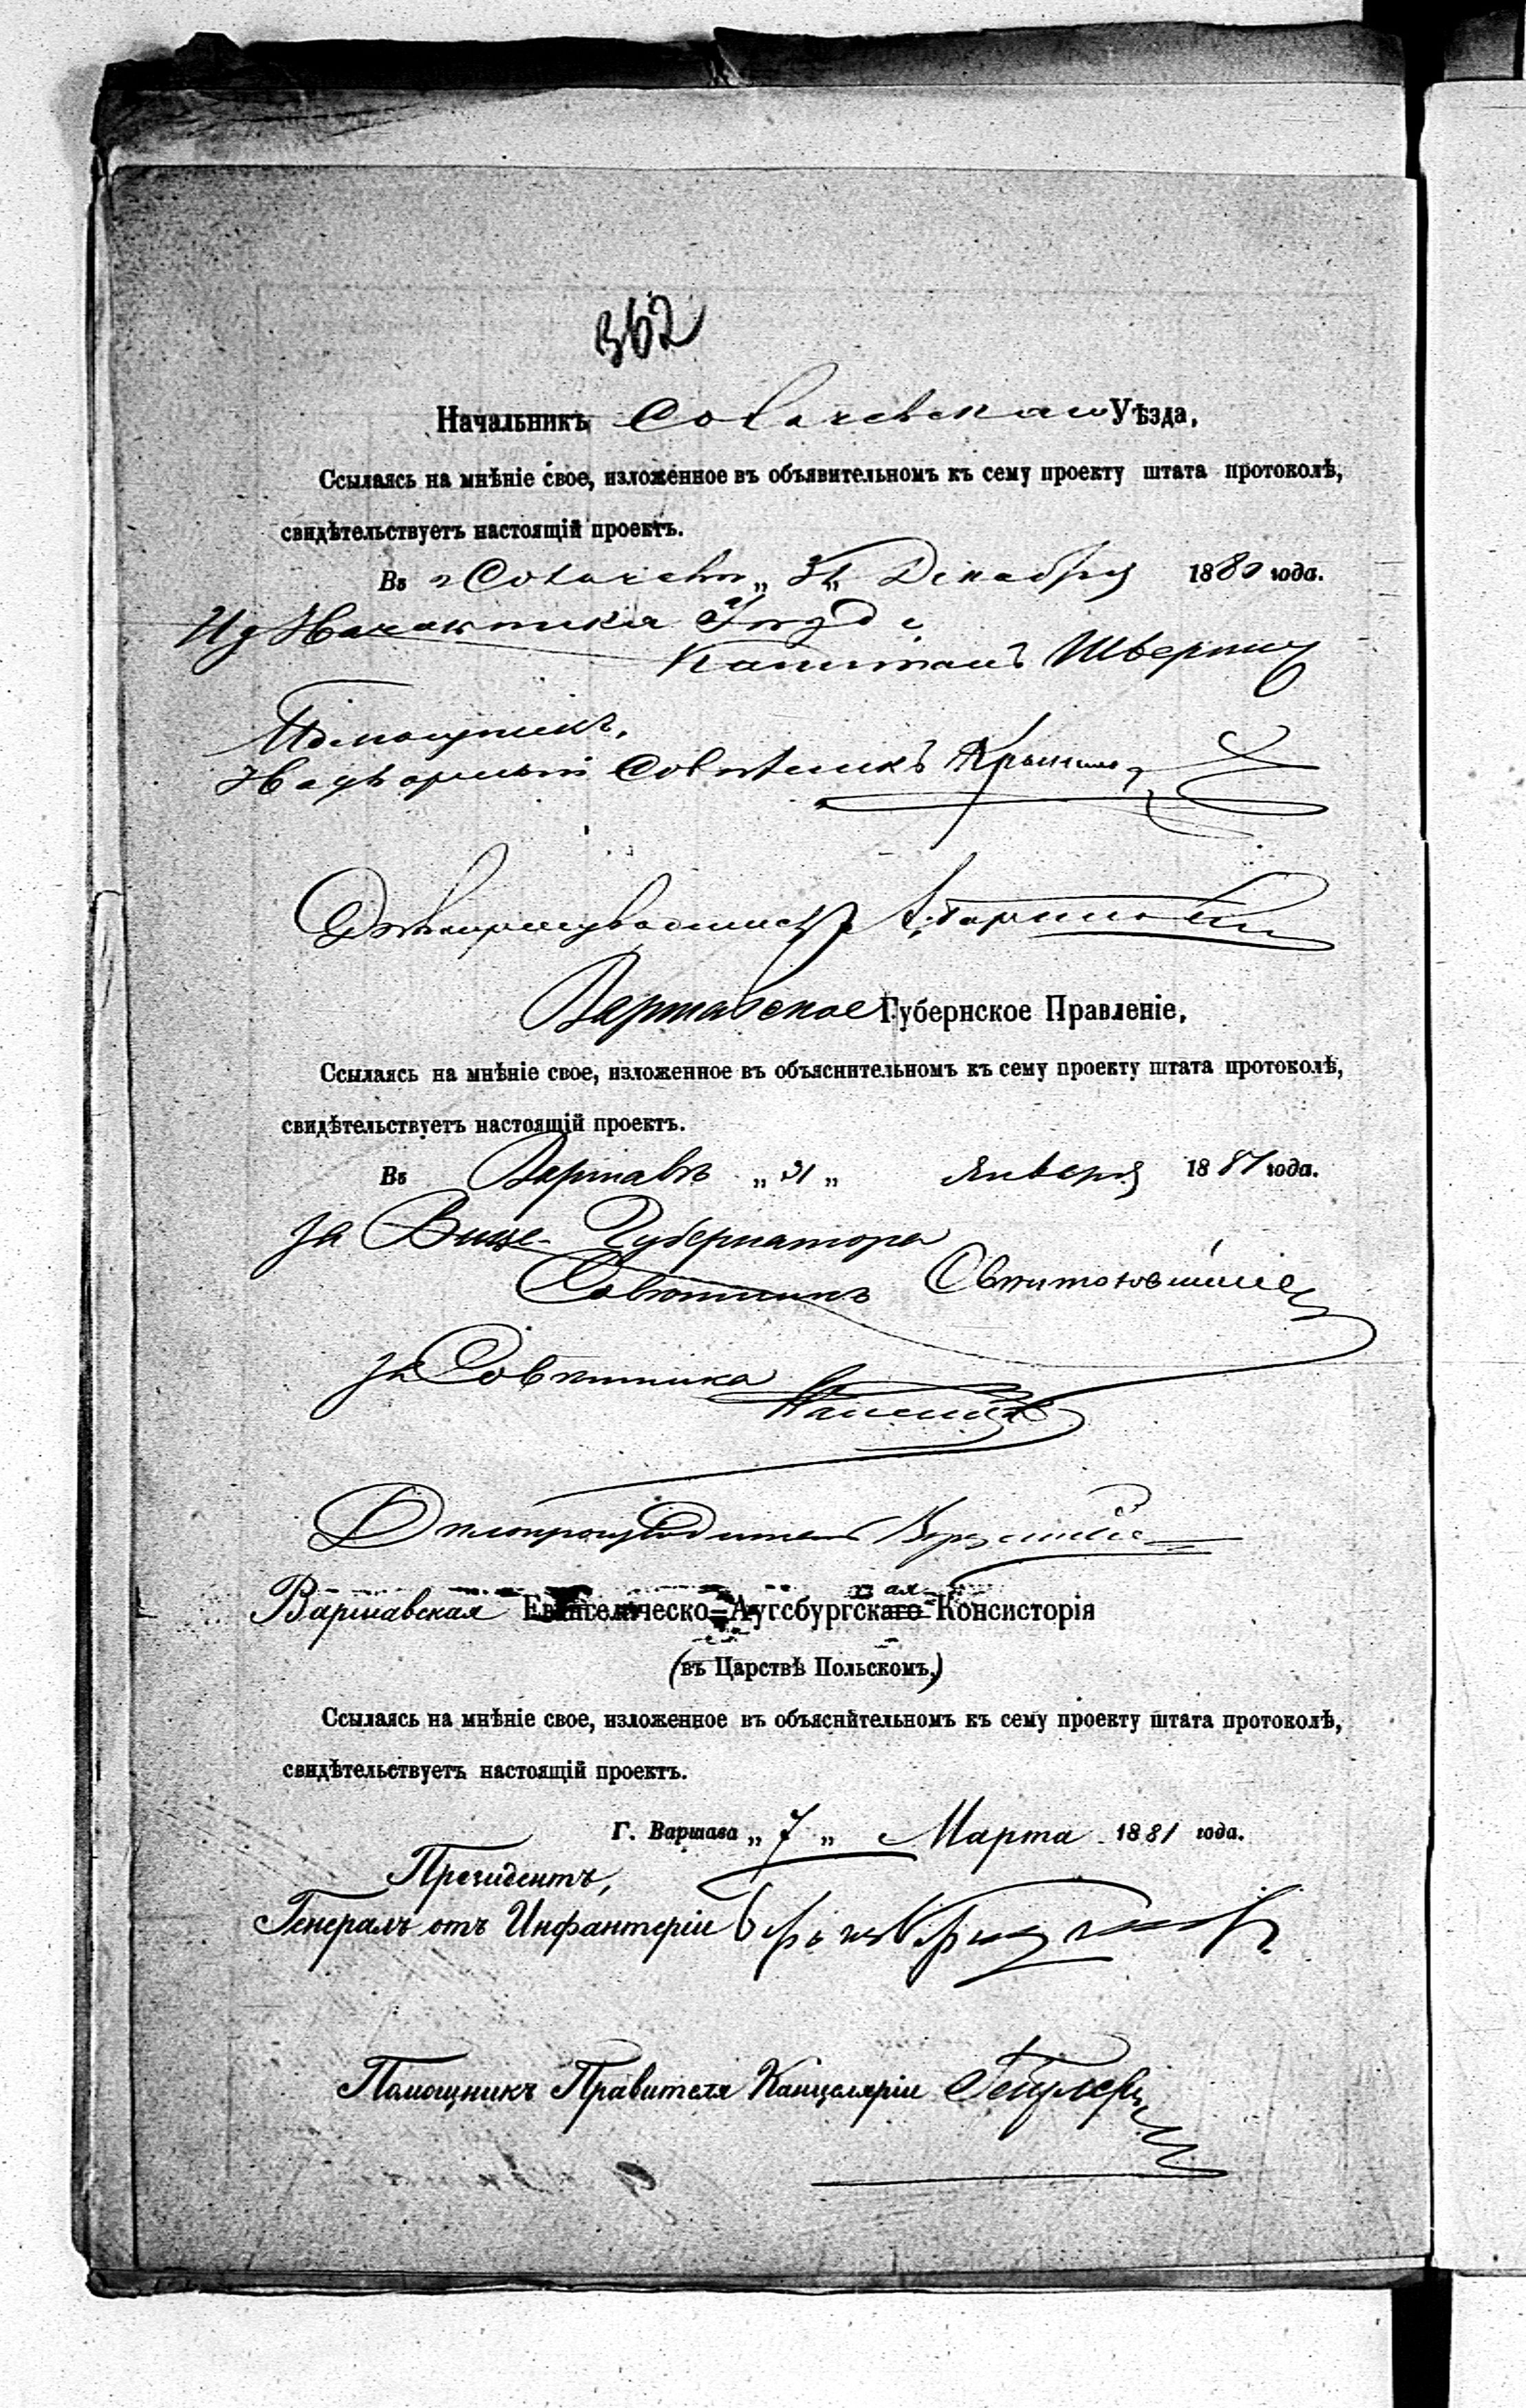 362
Начальникъ Сохачевскаго Уѣзда,
Ссылаясь на мнѣніе свое, изложенное въ объявительномъ къ сему проекту штата протоколѣ,
свидѣтельствуетъ настоящій проектъ.
Въ г Сохачевѣ „31„ Декабря 1880 года.
Ид Начальника Уѣзда
Капитанъ
Помощникъ,
Надворный Совѣтникъ
Варшавское Губернское Правленіе,
Ссылаясь на мнѣніе свое, изложенное въ объяснительномъ къ сему проекту штата протоколѣ,
свидѣтельствуетъ настоящій проектъ.
Въ Варшавѣ „31„ Января 1881 года.
За Вице-Губернатора
Совѣтникъ
За Совѣтника
Дѣлопроизводитель
Варшавская Евангелическо-Аугсбургская Консисторія
(въ Царствѣ Польскомъ.)
Ссылаясь на мнѣніе свое, изложенное въ объяснительномъ къ сему проекту штата протоколѣ,
свидѣтельствуетъ настоящій проектъ.
Г. Варшава „7„ Марта 1881 года.
Президентъ,
Генералъ отъ Инфантеріи
Помощникъ Правителя Канцеляріи